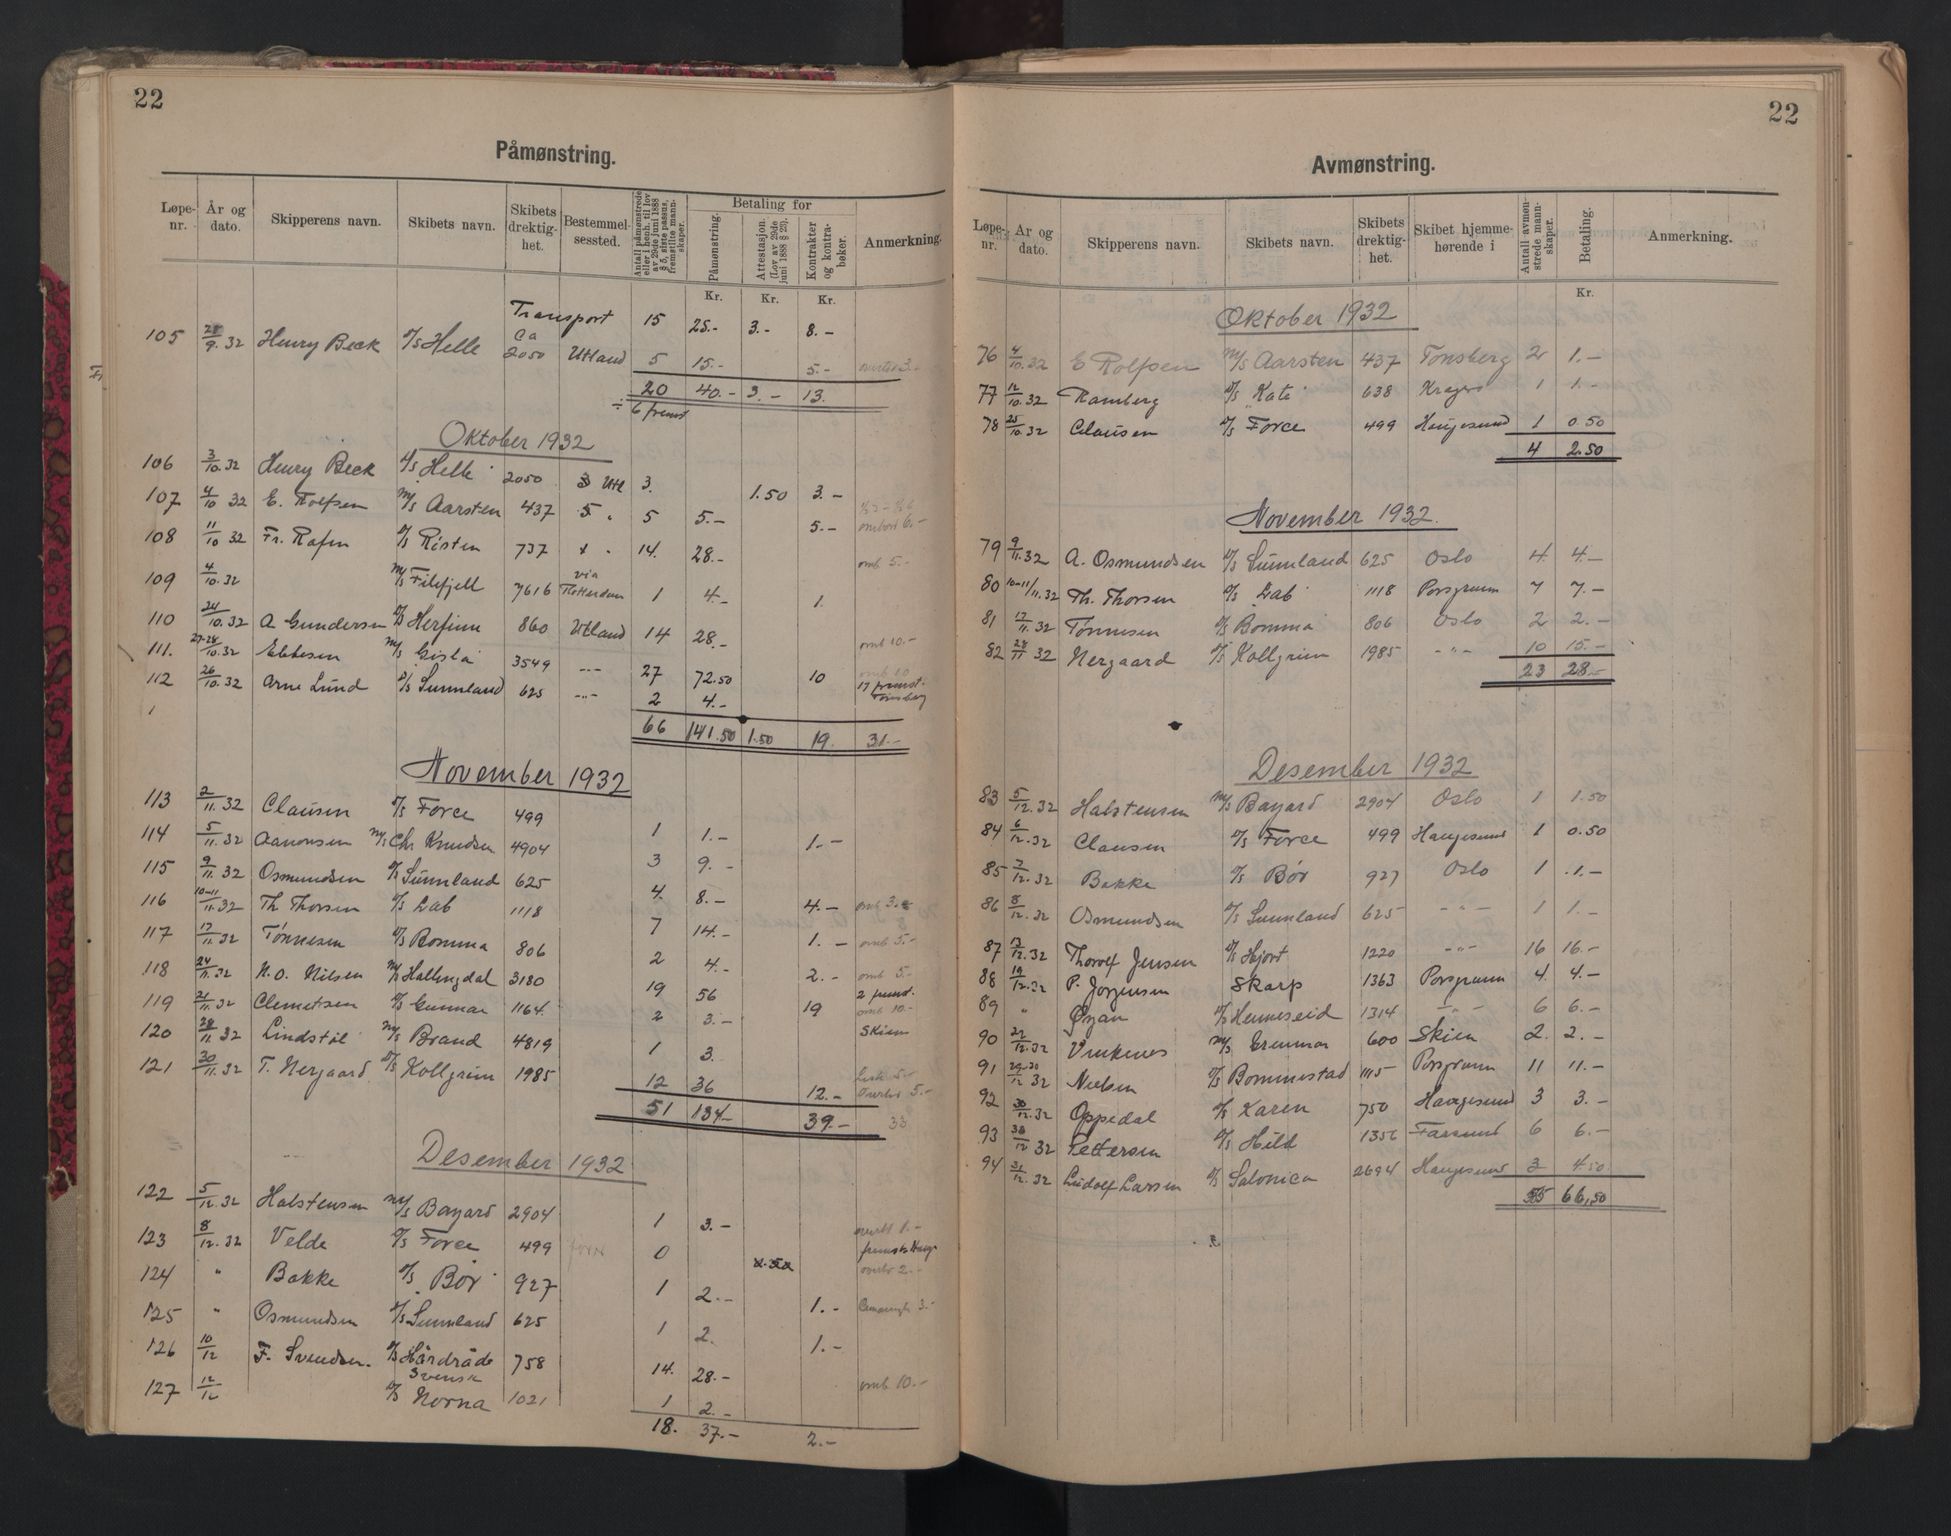 22
Påmønstring.
Løpe-nr. År og dato. Skipperens navn. Skibets navn. Skibets drektig-het. Bestemmel-sessted. Antall påmønstrede eller i henh. til lov av 29de juni 1888 § 5, siste passus, fremstilte mann-skaper. Betaling for Påmønstring. Attestasjon. (Lov av 29de juni 1888 § 25). Kontrakter og kontra-bøker. Anmerkning.
Kr. Kr. Kr.
Transport 15 25.- 3.- 8.-
105 28/9.32 Henry Beck D/S Helle ca 2050 Utland 5 15.- 5.- 3.-
20 40.- 3.- 13.
÷ 6 fremst
Oktober 1932
106 3/10.32 Henry Beck D/S Helle 2050 Utl 3. 1.50 3.-
107 4/10 32 E. Rolfsen M/S Aarsten 437 5 " 5 5.- 5.- ombord 6.-
108 11/10 32 Fr. Rafen D/S Risten 737 " 14. 28.- omb 5.-
109 4/10.32 M/S Filefjell 7616 via Rotterdam 1 4.- 1.
110 24/10.32 A Gundersen D/S Herfinn 860 Utland 14 28.- omb 10.-
111. 27-28/10.32 Ebbesen M/S Gisla 3549 -"- 27 72.50 10 omb 10
112 26/10.32 Arne Lund D/S Sunnland 625 -"- 2 4.- 17 fremst. Tønsberg
66 141.50 1.50 19. 31.-
November 1932
113 2/11.32 Clausen D/S Force 499 1 1.- 1.-
114 5/11.32 Aanonsen M/S Chr. Knudsen 4904 3 9.-
115 9/11.32 Osmundsen D/S Sunnland 625 4. 8.- 4.- omb 3.-
116 10-11/11.32 Th Thorsen D/S Dab 1118 7 14.- 1.- omb 5.-
117 17/11.32 Tønnesen D/S Bomma 806 2 4.- 2.- omb 5.-
118 24/11.32 N.O. Nilsen M/S Hallingdal 3180 19 56 19 2 fremst. omb 10.-
119 21/11.32 Clemetsen D/S Gunnar 1164. 2 3.- Skien
120 28/11 32 Lindstøl M/S Brand 4819 1 3.
121 30/11.32 T. Nergaard D/S Kollgrim 1985 12 36 12.- 5.-
51 134.- 39.- 33
Desember 1932
122 5/12.32 Halstensen M/S Bayard 2904 1 3.- 1.-
123 8/12.32 Velde D/S Force 499 0
124 " Bakke D/S Bør 927 1 2.- 1.- 2.-
125 " Osmundsen D/S Sunnland 625 1 2. 1.- 3.-
126 10/12 F. Svendsen. D/S Hårdråde 758 14. 28.- omb 10.-
127 12/12 Svensk D/S Norna 1021 1 2.-
18. 37.- 2.-
22
Avmønstring.
Løpe-nr. År og dato. Skipperens navn. Skibets navn. Skibets drektig-het. Skibet hjemme-hørende i Antall avmøn-strede mann-skaper. Betaling. Anmerkning.
Kr.
Oktober 1932
76 4/10.32 E Rolfsen M/S Aarsten 437 Tønsberg 2 1.-
77 12/10.32 Ramberg D/S Kati 638 Kragerø 1 1.-
78 25/10.32 Clausen D/S Force 499 Haugesund 1 0.50
4 2.50
November 1932.
79 9/11.32 A. Osmundsen D/S Sunnland 625 Oslo 4. 4.-
80 10-11/11.32 Th. Thorsen D/S Dab 1118 Porsgrunn 7 7.-
81 17/11.32 Tønnesen D/S Bomma 806 Oslo 2 2.-
82 28/11 32 Nergaard D/S Kollgrim 1985 -"- 10 15.-
23 28.-
Desember 1932
83 5/12.32 Halstensen M/S Bayard 2904 Oslo 1 1.50
84 6/12.32 Clausen D/S Force 499 Haugesund 1 0.50
85 7/12.32 Bakke D/S Bør 927 Oslo 1 1.-
86 8/12.32 Osmundsen D/S Sunnland 625 -"- 1 1.-
87 13/12.32 Thorolf Jensen D/S Hjort 1220 -"- 16 16.-
88 19/12.32 P. Jørgensen Skarp 1363 Porsgrunn 4. 4.-
89 " Øyan D/S Henneseid 1314 -"- 6 6.-
90 22/12.32 Vinkenes M/S Grenmar 600 Skien 2. 2.-
91 29-30/12 32 Nielsen D/S Bommestad 1115 Porsgrunn 11 11.-
92 30/12.32 Oppedal D/S Karen 750 Haugesund 3 3.-
93 30/12 32 Pettersen D/S Hild 1356 Farsund 6 6.-
94 31/12.32 Ludolf Larsen D/S Salonica 2694 Haugesund 3 4.50
55 66,50